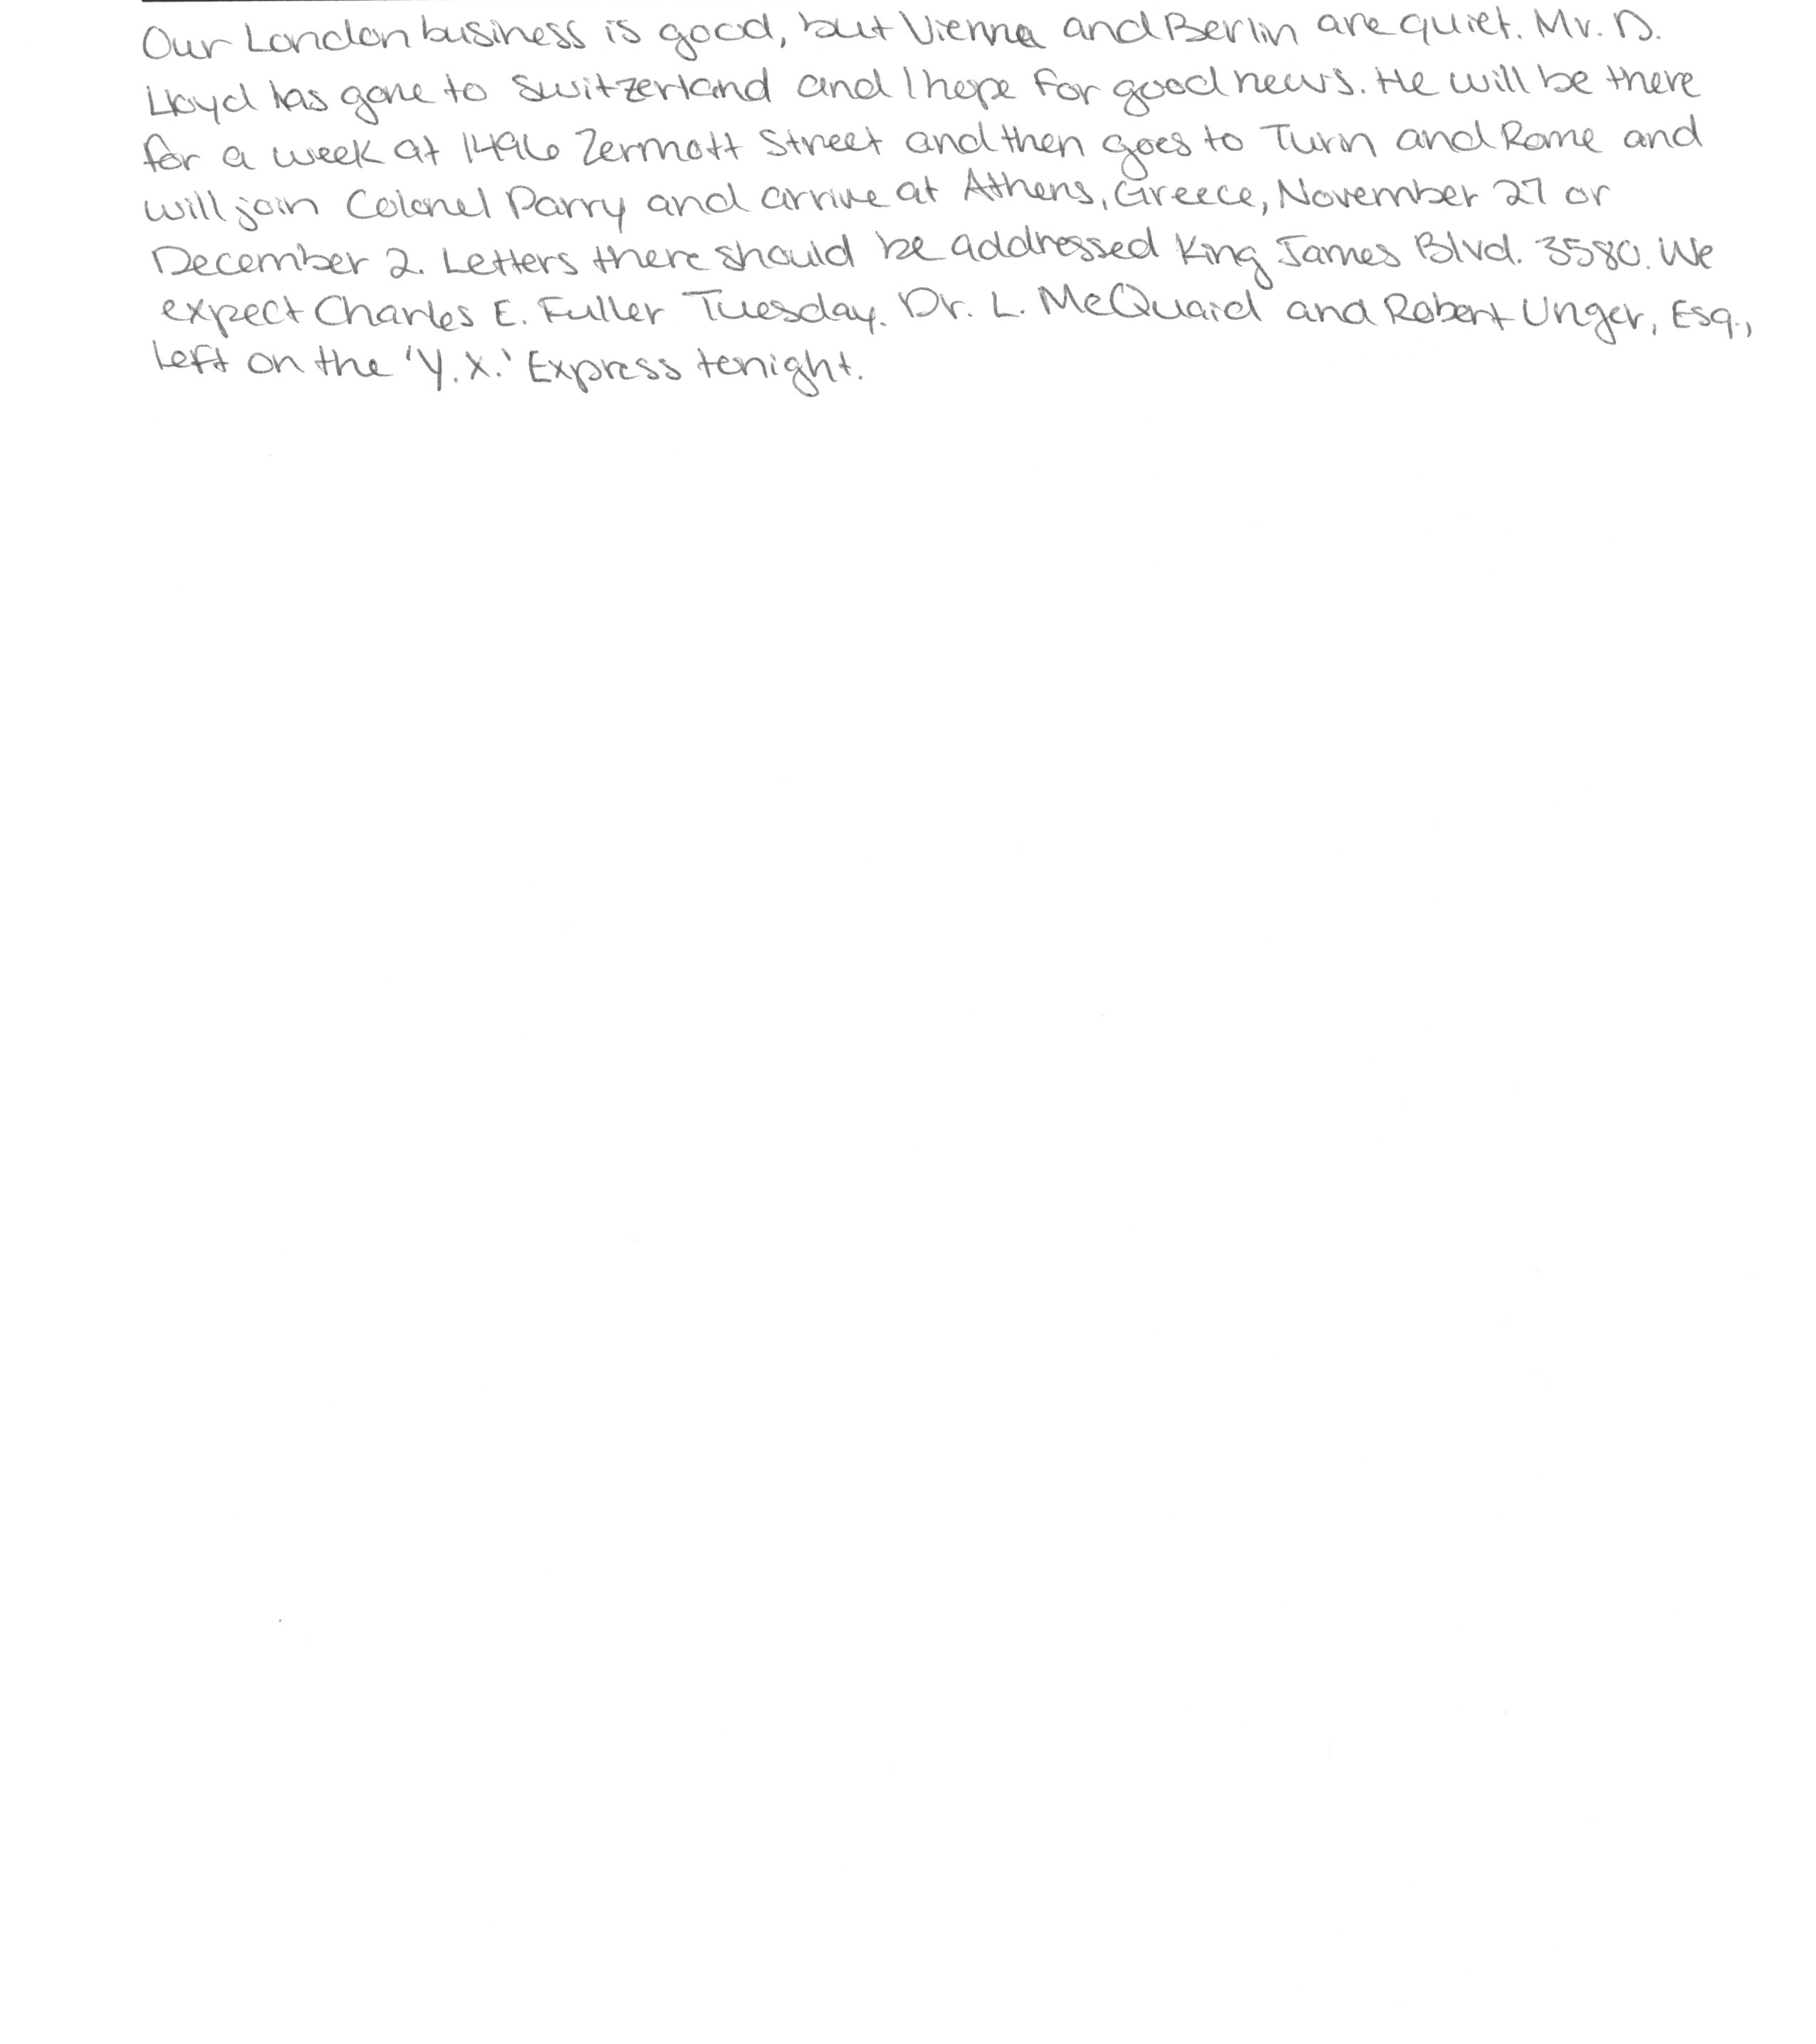 Our London business is good, but Vienna and Berlin are quiet. Mr. D.
Lloyd has gone to Switzerland and I hope for good news. He will be there
for a week at 1496 Zermott Street and then goes to Turin and Rome and
will join Colonel Parry and arrive at Athens, Greece, November 27 or
December 2. Letters there should be addressed King James Blvd. 3580. We
expect Charles E. Fuller Tuesday. Dr. L. McQuaid and Robert Unger, Esq.,
left on the 'Y.X.' Express tonight.